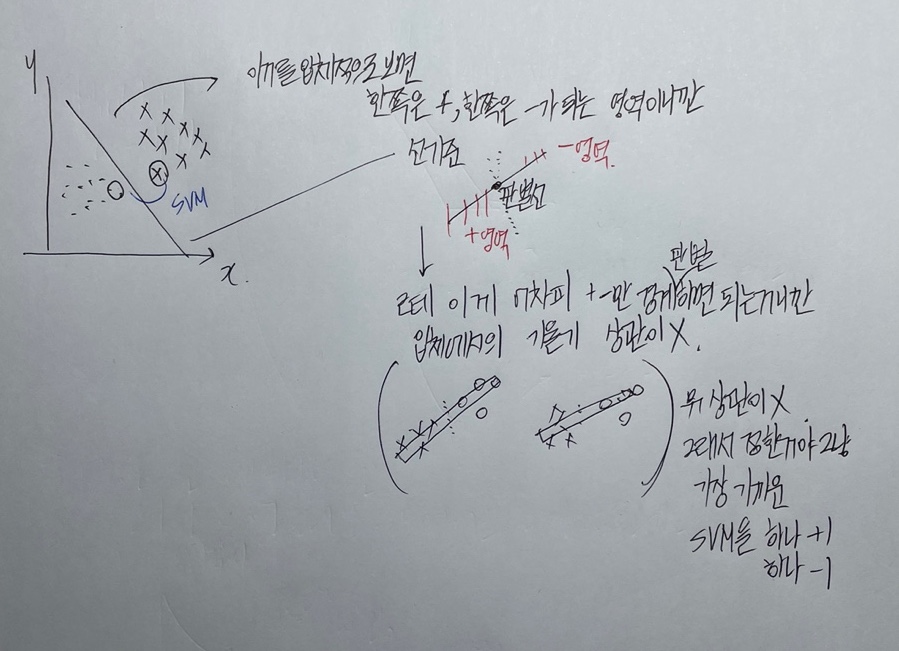 y
x
SVM
이거를 입체적으로 보면
한쪽은 +, 한쪽은 -가 되는 영역이니깐
선기준
-영역
판별선
+영역
판별
근데 이게 어차피 +-만 경계하면 되는거니깐
입체에서의 기울기 상관이 X.
뭐 상관이 X.
그래서 정한거야 그냥
가장 가까운
SVM을 하나 +1
하나 -1